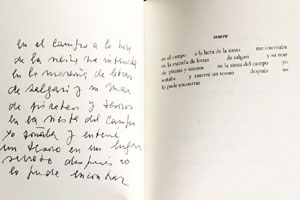 en el campo a la hora
de la siesta me internaba
en la maraña de letras
de salgari y su mar
de piratas y tesoros
en la siesta del campo
yo soñaba y enterré
un tesoro en un lugar
secreto después no
lo pude encontrar
tesoro
en el campo a la hora de la siesta me internaba
en la maraña de letras de salgari y su mar
de piratas y tesoros en la siesta del campo yo
soñaba y enterré un tesoro después no
lo pude encontrar